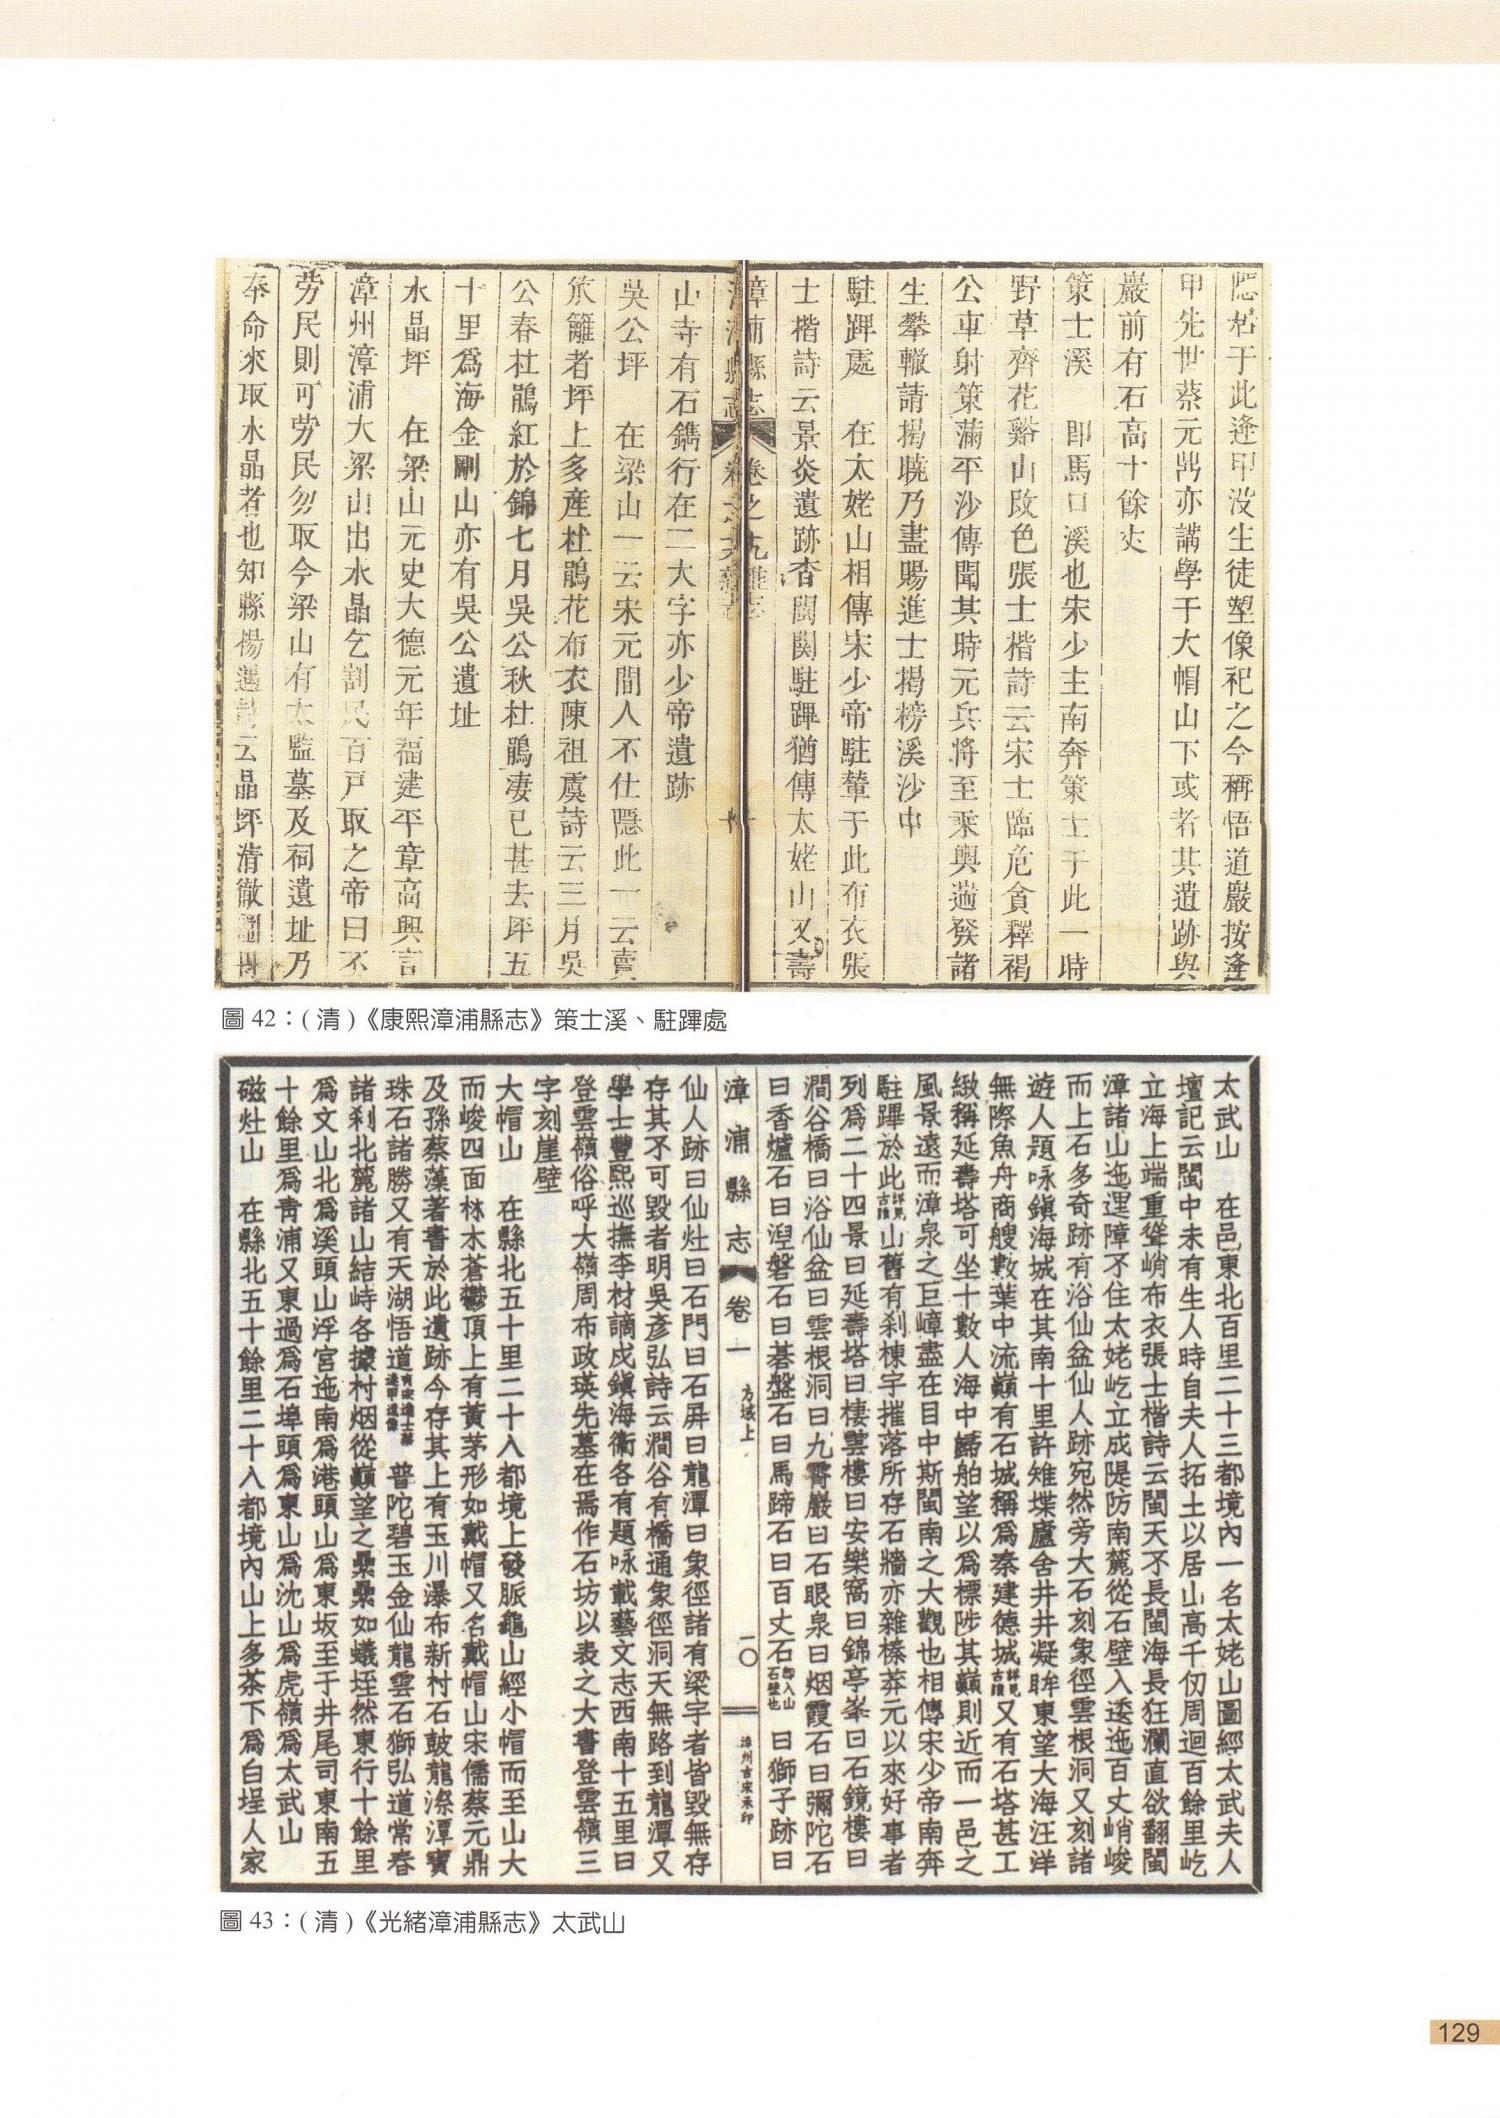 隱居于此逢甲沒生徒塑像祀之今稱悟道巖按逢
甲先世蔡元鼎亦講學于大帽山下或者其遺跡與
巖前有石高十餘丈
策士溪　即馬口溪也宋少主南奔策士于此一時
野草齊花谿山改色張士楷詩云宋士臨危貪釋褐
公車射策滿平沙傳聞其時元兵將至乘輿遄發諸
生攀轍請揭曉乃盡賜進士揭榜溪沙中
駐蹕處　在太姥山相傳宋少帝駐輦于此布衣張
士楷詩云景炎遺跡杳閩關駐蹕猶傳太姥山又壽
漳浦縣志　卷之九雜志
山寺有石鐫行在二大字亦少帝遺跡
吳公坪　在梁山一云宋元間人不仕隱此一云賣
笊籬者坪上多產杜鵑花布衣陳祖虞詩云三月吳
公春杜鵑紅於錦七月吳公秋杜鵑淒已甚去坪五
十里為海金剛山亦有吳公遺址
水晶坪　在梁山元史大德元年福建平章高興言
漳州漳浦大梁山出水晶乞割民百戶取之帝曰不
勞民則可勞民勿取今梁山有太監墓及祠遺址乃
奉命來取水晶者也知縣楊遇詩云晶坪清徹
圖 42：( 清 )《康熙漳浦縣志》策士溪、駐蹕處
太武山　在邑東北百里二十三都境內一名太姥山圖經太武夫人
壇記云閩中未有生人時自夫人拓土以居山高千仞周迴百餘里屹
立海上端重聳峭布衣張士楷詩云閩天不長閩海長狂瀾直欲翻閩
漳諸山迤邐障不住太姥屹立成隄防南麓從石壁入逶迤百丈峭峻
而上石多奇跡有浴仙盆仙人跡宛然旁大石刻象徑雲根洞又刻諸
遊人題咏鎮海城在其南十里許雉堞廬舍井井凝眸東望大海汪洋
無際魚舟商艘數葉中流巔有石城稱為秦建德城詳見古蹟又有石塔甚工
緻稱延壽塔可坐十數人海中歸舶望以為標陟其巔則近而一邑之
風景遠而漳泉之巨嶂盡在目中斯閩南之大觀也相傳宋少帝南奔
駐蹕於此詳見古蹟山舊有剎棟宇摧落所存石牆亦雜榛莽元以來好事者
列為二十四景曰延壽塔曰棲雲樓曰安樂窩曰錦亭峯曰石鏡樓曰
澗谷橋曰浴仙盆曰雲根洞曰九霄巖曰石眼泉曰烟霞石曰彌陀石
曰香爐石曰湼磐石曰碁盤石曰馬蹄石曰百丈石即入山石壁也　曰獅子跡曰
漳浦縣志　卷一　方域上　一〇　漳州古宋承印
仙人跡曰仙灶曰石門曰石屏曰龍潭曰象徑諸有梁宇者皆毀無存
存其不可毀者明吳彥弘詩云澗谷有橋通象徑洞天無路到龍潭又
學士豐熙巡撫李材謫戍鎮海衛各有題咏載藝文志西南十五里曰
登雲嶺俗呼大嶺周布政瑛先墓在焉作石坊以表之大書登雲嶺三
字刻崖壁
大帽山　在縣北五十里二十八都境上發脈龜山經小帽而至山大
而峻四面林木蒼鬱頂上有黃茅形如戴帽又名戴帽山宋儒蔡元鼎
及孫蔡藻著書於此遺跡今存其上有玉川瀑布新村石鼓龍潭寶
珠石諸勝又有天湖悟道有宋進士蔡逢甲遺像　普陀碧玉金仙龍雲石獅弘道常春
諸剎北麓諸山結峙各據村烟從巔望之纍纍如蟻垤然東行十餘里
為文山北為溪頭山浮宮迤南為港頭山為東坂至于井尾司東南五
十餘里為青浦又東過為石埠頭為東山為沈山為虎嶺為太武山
磁灶山　在縣北五十餘里二十八都境內山上多茶下為白埕人家
圖 43：( 清 )《光緒漳浦縣志》太武山
129